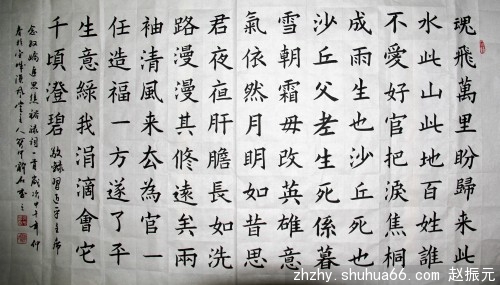 魂飛萬里盼歸来此
水此山此地百姓誰
不愛好官把淚焦桐
成雨生也沙丘死也
沙丘父老生死係暮
雪朝霜毋改英雄意
氣依然月明如昔思
君夜亱肝膽長如洗
路漫漫其修遠矣兩
袖清風来厺為官一
任造福一方遂了平
生意綠我涓滴會它
千頃澄碧 敬録習近平主席
念奴嬌追思焦裕禄詞一首歲次甲午年仲
春於
zhzhy.shuhua66.com 赵振元